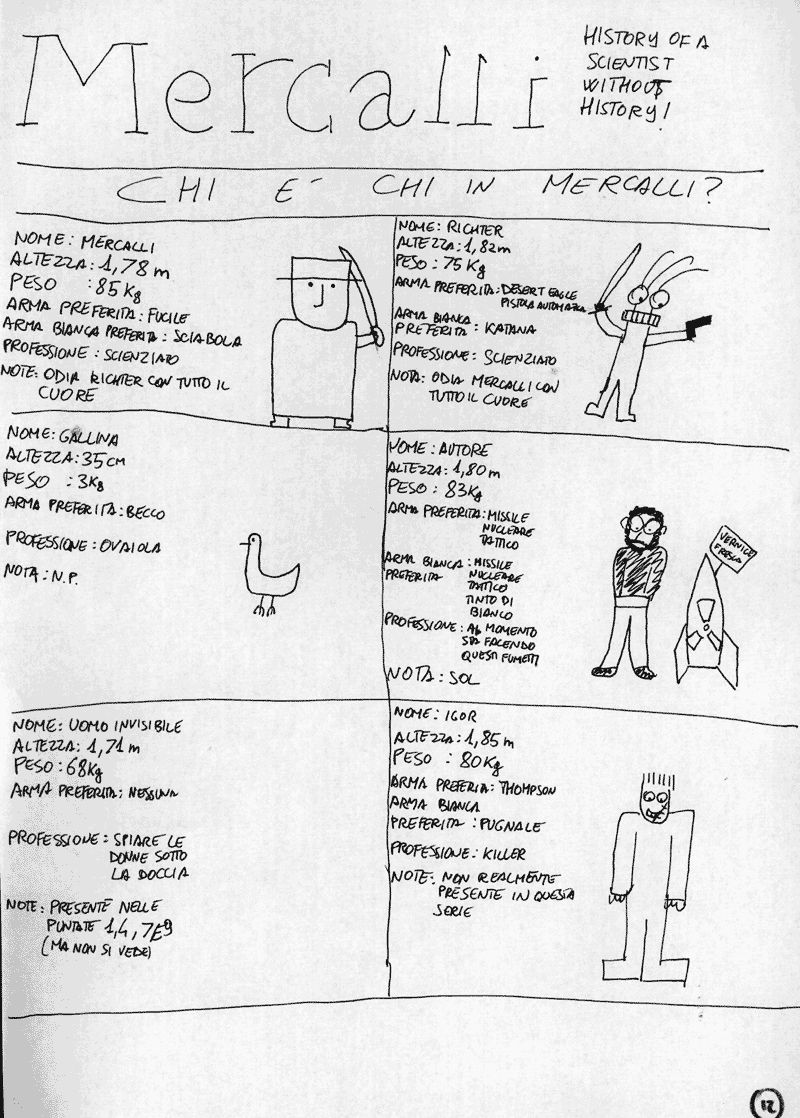 Mercalli
HISTORY OF A
SCIENTIST
WITHOUT
HISTORY!
CHI E' CHI IN MERCALLI?
NOME: MERCALLI
ALTEZZA: 1,78 m
PESO : 85 Kg
ARMA PREFERITA: FUCILE
ARMA BIANCA PREFERITA: SCIABOLA
PROFESSIONE: SCIENZIATO
NOTE: ODIA RICHTER CON TUTTO IL
CUORE
NOME: RICHTER
ALTEZZA: 1,82 m
PESO : 75 Kg
ARMA PREFERITA: DESERT EAGLE
PISTOLA AUTOMATICA
ARMA BIANCA
PREFERITA : KATANA
PROFESSIONE: SCIENZIATO
NOTA: ODIA MERCALLI CON
TUTTO IL CUORE
NOME: GALLINA
ALTEZZA: 35 CM
PESO : 3 Kg
ARMA PREFERITA: BECCO
PROFESSIONE: OVAIOLA
NOTA: N.P.
NOME: AUTORE
ALTEZZA: 1,80 m
PESO : 83 Kg
ARMA PREFERITA: MISSILE
NUCLEARE
TATTICO
ARMA BIANCA : MISSILE
PREFERITA NUCLEARE
TATTICO
TINTO DI
BIANCO
PROFESSIONE: AL MOMENTO
STA FACENDO
QUESTI FUMETTI
NOTA: SOL
VERNICE
FRESCA
NOME: UOMO INVISIBILE
ALTEZZA: 1,71 m
PESO: 68 Kg
ARMA PREFERITA: NESSUNA
PROFESSIONE: SPIARE LE
DONNE SOTTO
LA DOCCIA
NOTE: PRESENTE NELLE
PUNTATE 1,4,7 E 9
(MA NON SI VEDE)
NOME: IGOR
ALTEZZA: 1,85 m
PESO : 80 Kg
ARMA PREFERIA: THOMPSON
ARMA BIANCA
PREFERITA : PUGNALE
PROFESSIONE: KILLER
NOTE: NON REALMENTE
PRESENTE IN QUESTA
SERIE
12